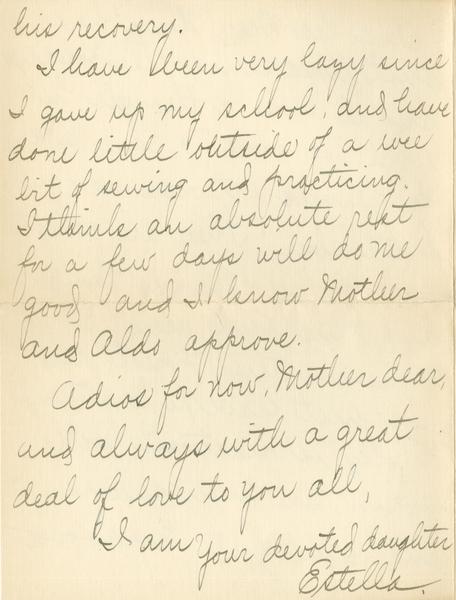 his recovery.
I have been very lazy since
I gave up my school, and have
done little outside of a wee
bit of sewing and practicing.
I think an absolute rest
for a few days will do me
good and I know Mother
and Aldo approve.
Adios for now, Mother dear,
and always with a great
deal of love to you all,
I am your devoted daughter
Estella.